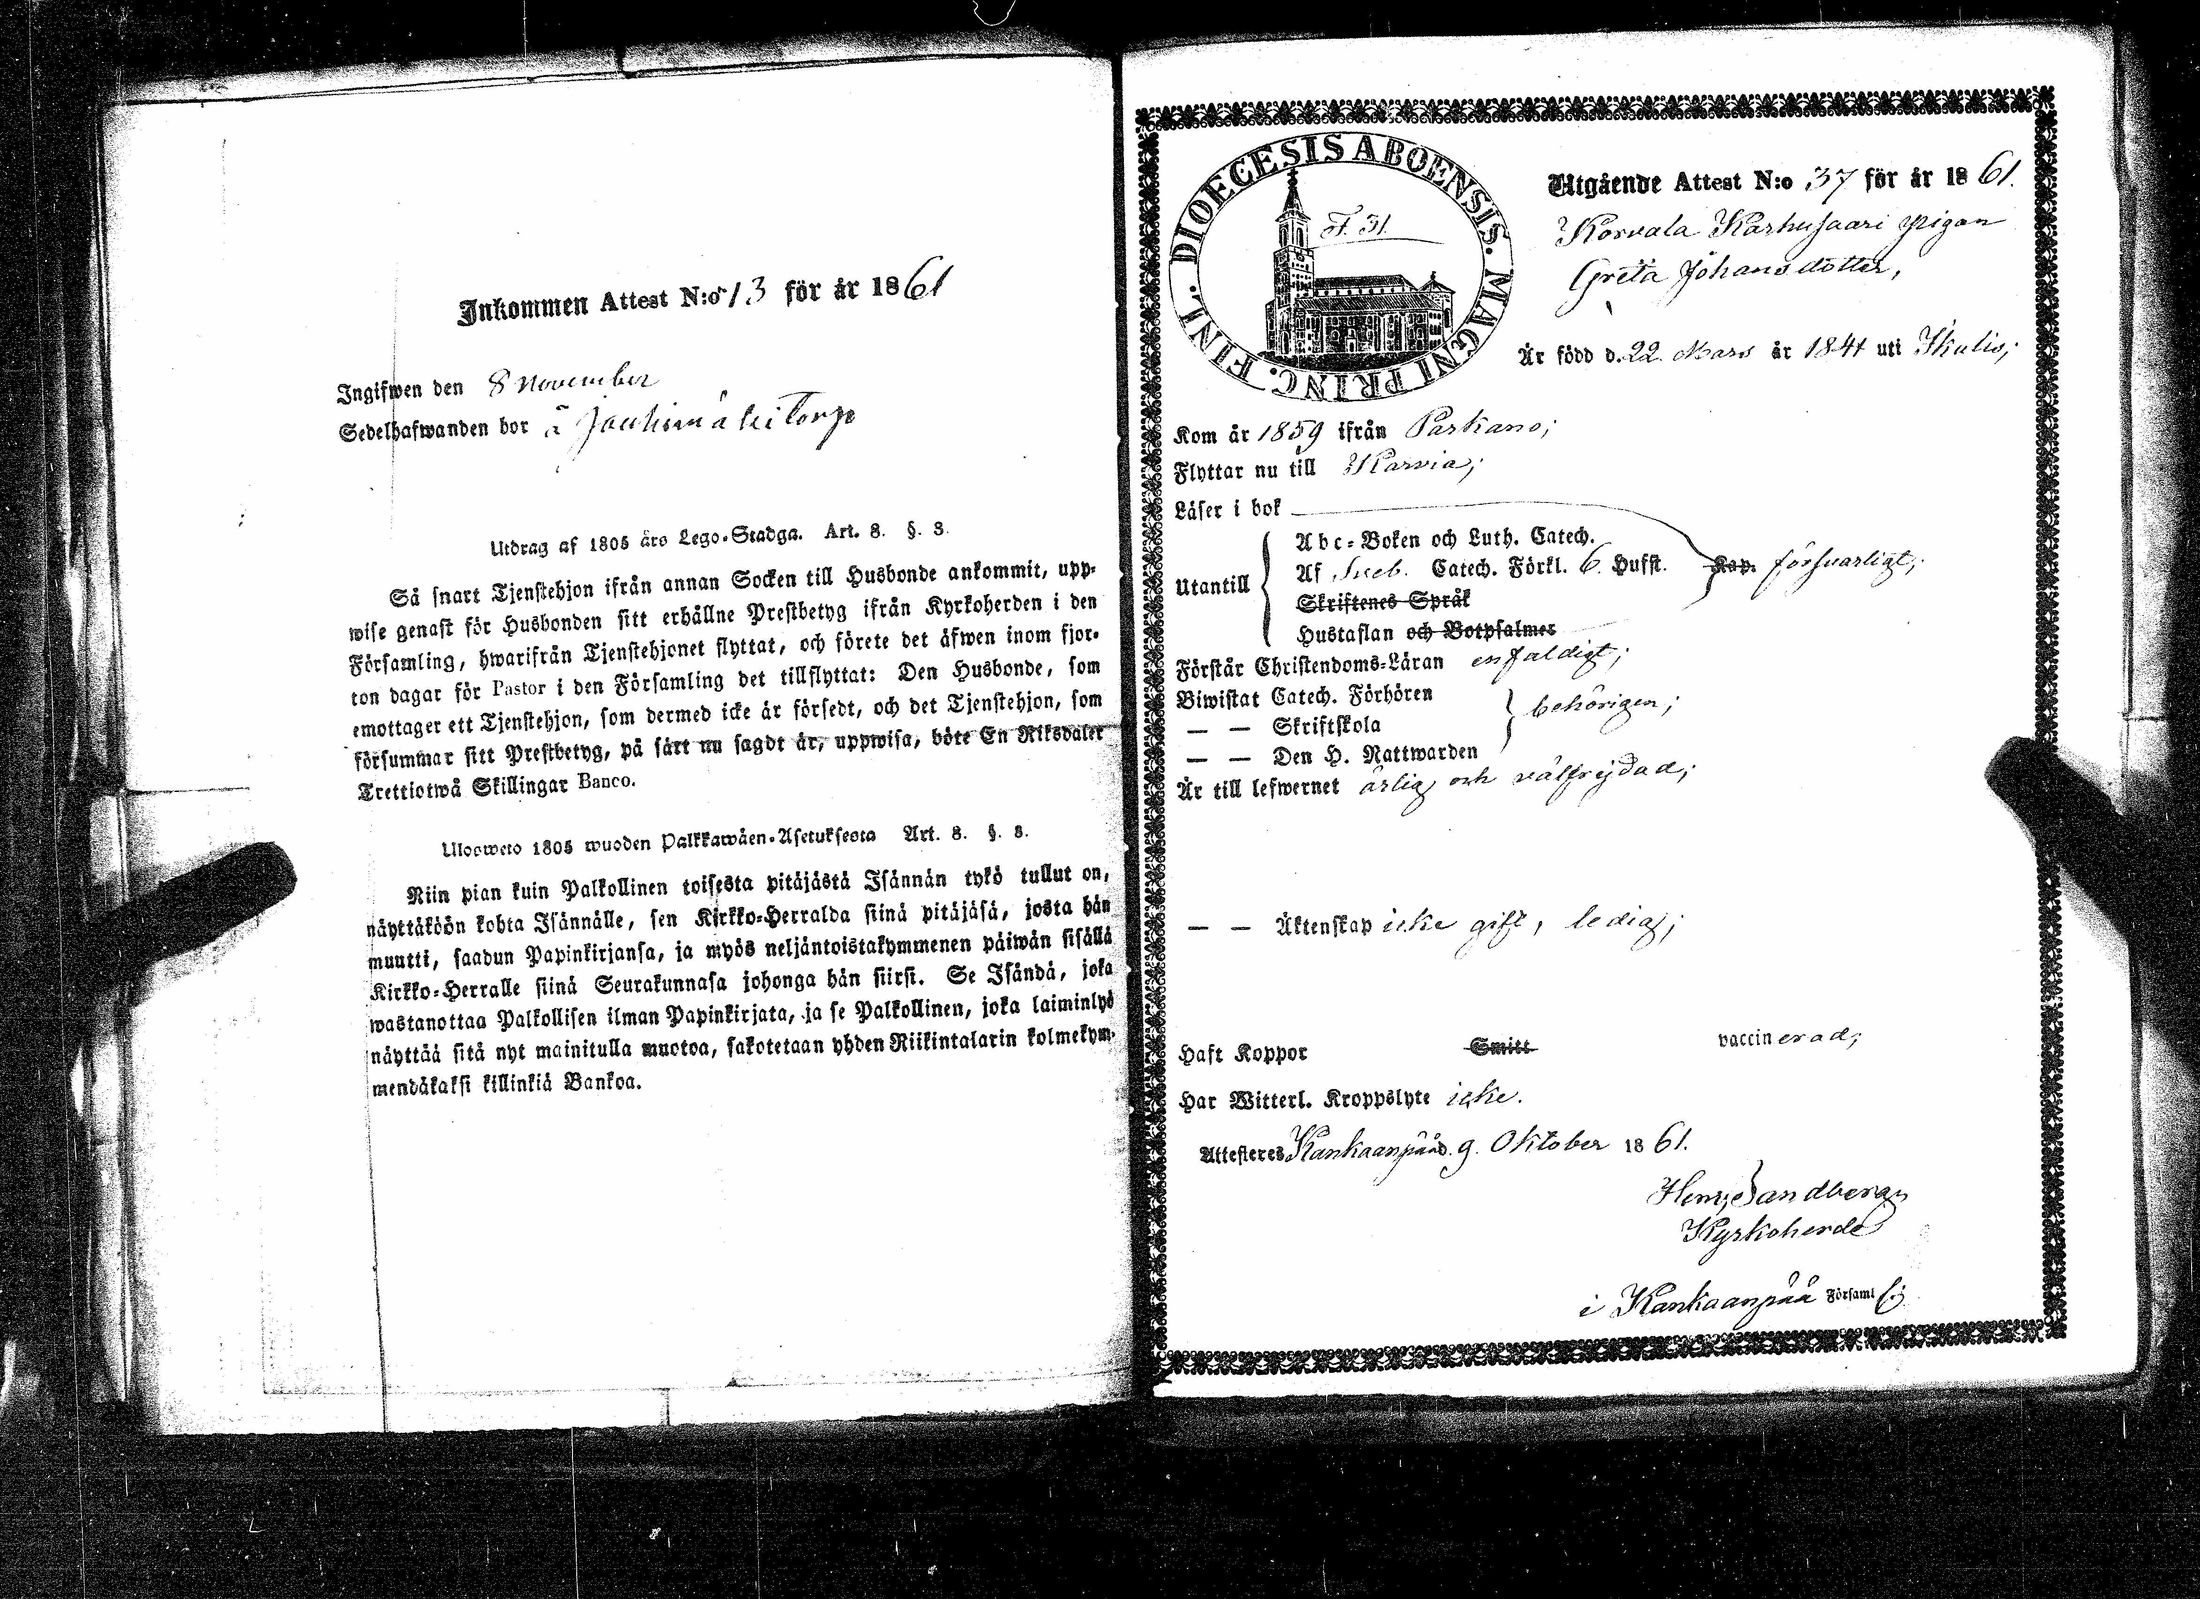 Inkommen Attest N:o 13 för år 1861
Ingifwen den 8 November
Sedelhafwanden bor å Jouhimäki Torp
Utdrag af 1805 års Lego-Stadga. Art. 8. §. 3.
Så snart Tjenstehjon ifrån annan Socken till Husbonde ankommit, upp-
wise genast för Husbonden sitt erhållne Prestbetyg ifrån Kyrkoherden i den
Församling, hwarifrån Tjenstehjonet flyttat, och förete det äfwen inom fjor-
ton dagar för Pastor i den Församling det tillflyttat: Den Husbonde, som
emottager ett Tjenstehjon, som dermed icke är försedt, och det Tjenstehjon, som
försummar sitt Prestbetyg, på sätt nu sagdt är, uppwisa, böte En Riksdaler
Trettiotwå Skillingar Banco.
Ulosweto 1805 wuoden Palkkawäen-Asetuksesta Art. 8. §. 3.
Niin pian kuin Palkollinen toisesta pitäjästä Isännän tykö tullut on,
näyttäköön kohta Isännälle, sen Kirkko-Herralda siinä pitäjäsä, josta hän
muutti, saadun Papinkirjansa, ja myös neljäntoistakymmenen päiwän sisällä
Kirkko-Herralle siinä Seurakunnasa johonga hän siirsi. Se Isändä, joka
wastanottaa Palkollisen ilman Papinkirjata, ja se Palkollinen, joka laiminlyö
näyttää sitä nyt mainitulla muotoa, sakotetaan yhden Riikintalarin kolmekym-
mendäkaksi killinkiä Bankoa.
DIOECESIS ABOENSIS. MAGNI PRINC. FINL.
F. 31.
Utgående Attest N:o 37 för år 1861.
Korvala Karhusaari pigan
Greta Johansdotter,
Är född d. 22 Mars år 1841 uti Ikalis;
Kom år 1859 ifrån Parkano;
Flyttar nu till Karvia;
Läser i bok
Utantill
Abc-Boken och Luth. Catech.
Af Sveb. Catech. Förkl. 6. Hufst. Kap. försvarligt;
Skriftenes Språk
Hustaflan och Botpsalmer
Förstår Christendoms-Läran enfaldigt;
Biwistat Catech. Förhören
— — Skriftskola behörigen;
— — Den H. Nattwarden
Är till lefwernet ärlig och välfrejdad;
— — Äktenskap icke gift, ledig;
Haft Koppor Smitt vaccinerad;
Har Witterl. Kroppslyte icke.
Attesteres Kankaanpää d. 9. Oktober 1861.
Henr. Sandberg
Kyrkoherde
i Kankaanpää Församl